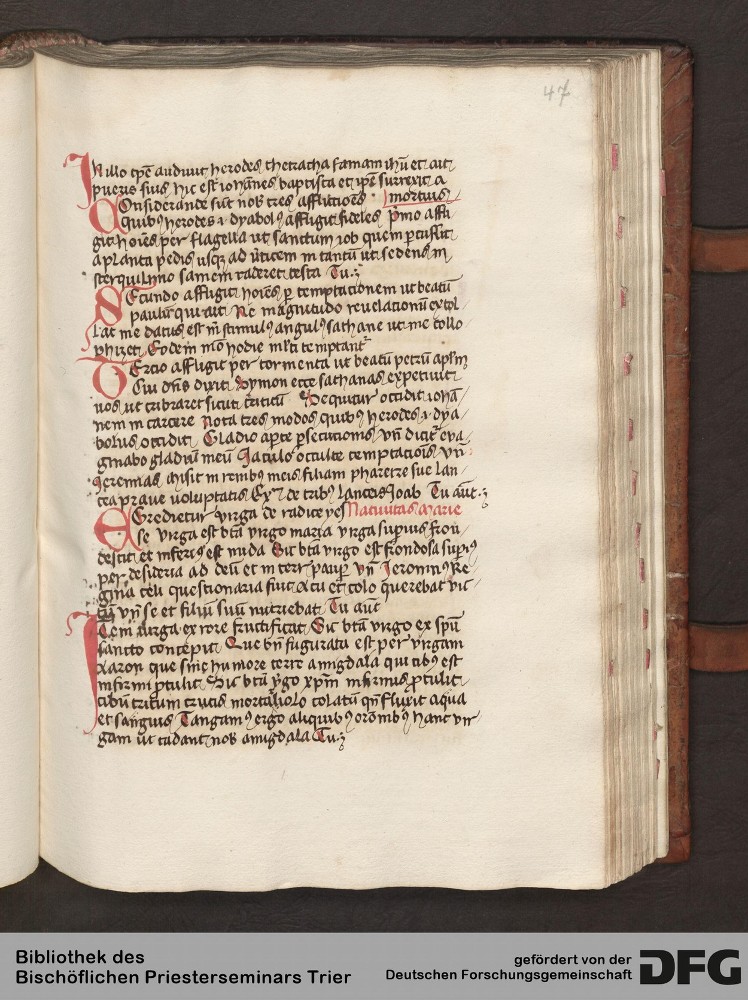 47
In illo tpe audiuit herodes thetracha famam ihu et ait
pueris suis hic est iohannes baptista et ipe surrexit a
Considerande sut nob tres afflictiões mortuis
quibus herodes et dyabolus affligit fideles Pmo affli
git hoies per flagella ut sanctum iob quem pcussit
a planta pedis usq ad uticem in tantu ut sedens in
sterquilinio saniem raderet testa Tu
Secundo affligit hoies p temptationem ut beatu
paulu qui ait Ne magnitudo reuelationu extol
lat me datus est m stimulus angulus sathane ut me collo
phizet Eodem mo hodie mlti temptant
Tercio affligit per tormenta ut beatu petru aplm
Cui dns dixit Symon ecce sathanas expetiuit
uos ut cribraret sicut triticu Sequitur occidit iohā
nem in carcere Nota tres modos quibus herodes et dya
bolus occidit Gladio apte psecutionis Vn dicit eua
ginabo gladiu meu Iaculo occulte temptacionis Vn
Jeremias misit in renibus meis filiam pharetre sue Lan
cea praue uoluptatis Ex de tribus lanceis Joab Tu aut
Egredietur uirga de radice yes Natiuitas Marie
se Virga est bta uirgo maria uirga superius fron
descit et inferius est nuda Sic bta uirgo est frondosa superius
per desideria ad deu et in terr paup Vn Jeronimus Re
gina celi questionaria fuit Acu et colo querebat vic
tu Vn se et filiu suu nutriebat Tu aut
Item uirga ex rore fructificat Sic bta uirgo ex spu
sancto concepit Que bn figurata est per uirgam
Aaron que sine humore terre amigdala qui cibus est
infirmi ptulit Sic bta vgo xpm infirmis ptulit
cibu tritum crucis mortariolo colatu qn fluxit aqua
et sanguis Tangamus ergo aliquibus orombus hanc vir
gam ut cudant nob amigdala Tu
Bibliothek des
Bischöflichen Priesterseminars Trier
gefördert von der
Deutschen Forschungsgemeinschaft
DFG